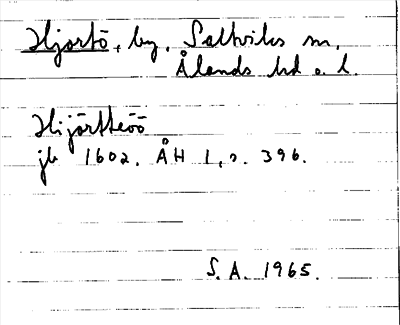 Hjortö, by, Saltviks sn,
Ålands hd o. l.
Hijörtteöö
jb 1602. ÅH 1, s. 396.
S. A. 1965.